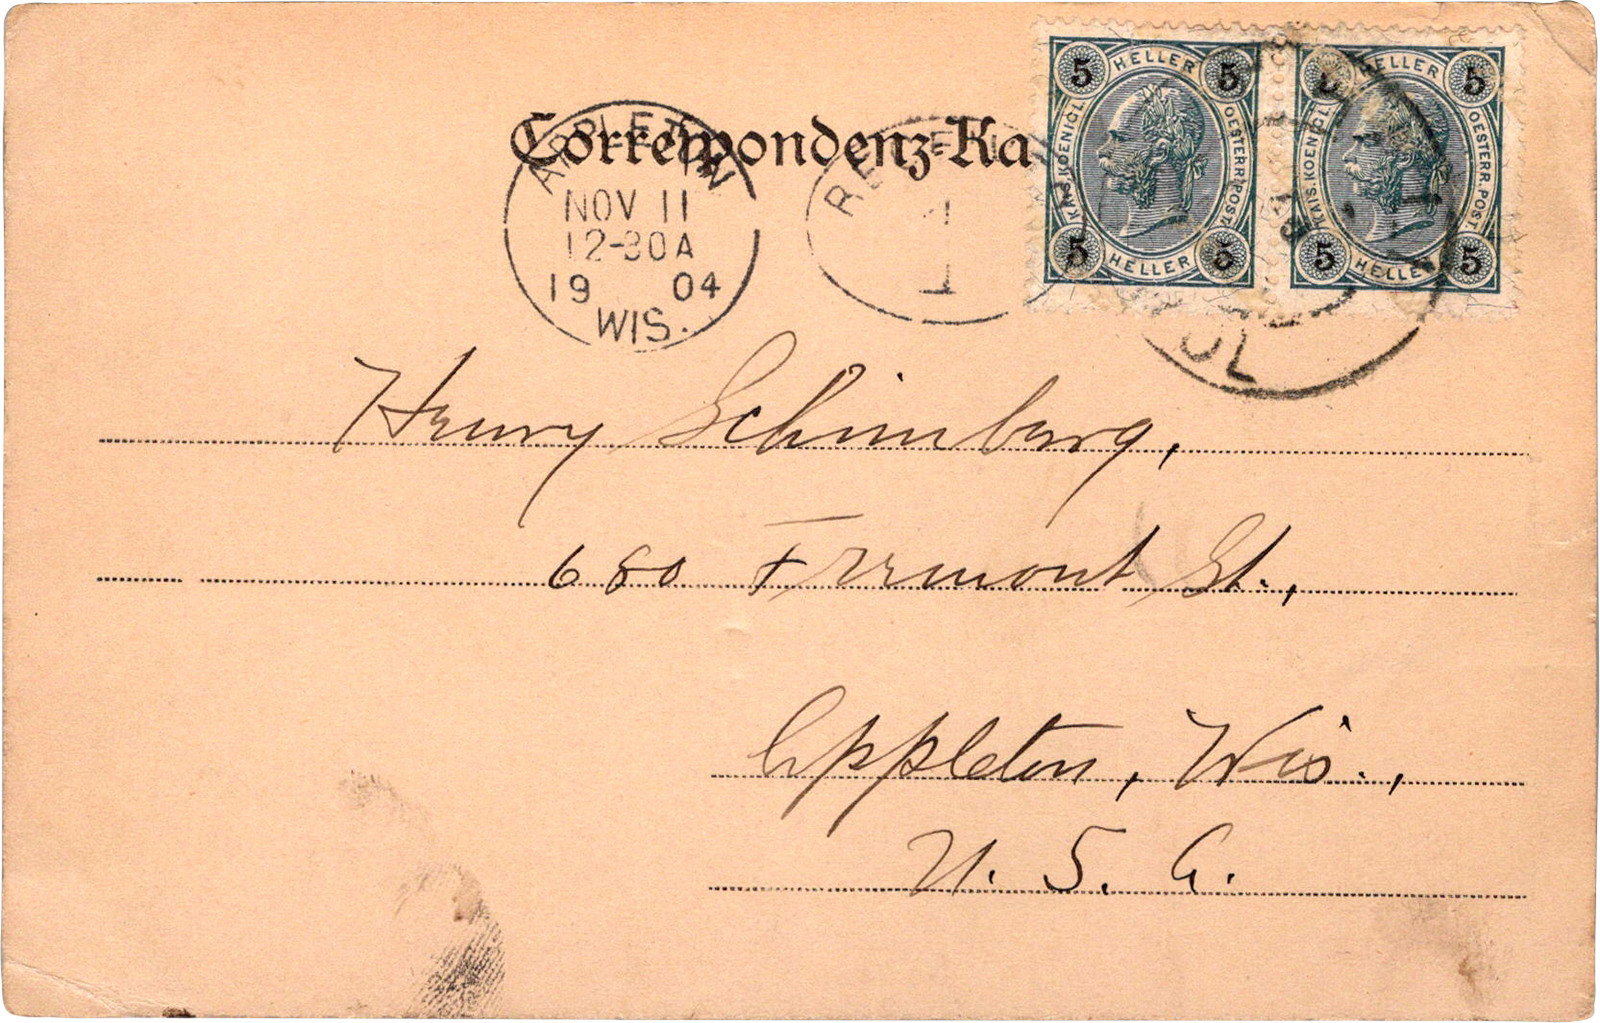 5 HELLER 5
KAIS. KOENIGL. OESTERR. POST.
5 HELLER 5
5 HELLER 5
KAIS. KOENIGL. OESTERR. POST.
5 HELLER 5
Correspondenz-Ka
APPLETON
NOV 11
12-30A
19 04
WIS.
1
Henry Schimberg,
680 Fremont St.,
Appleton, Wis.,
U. S. A.